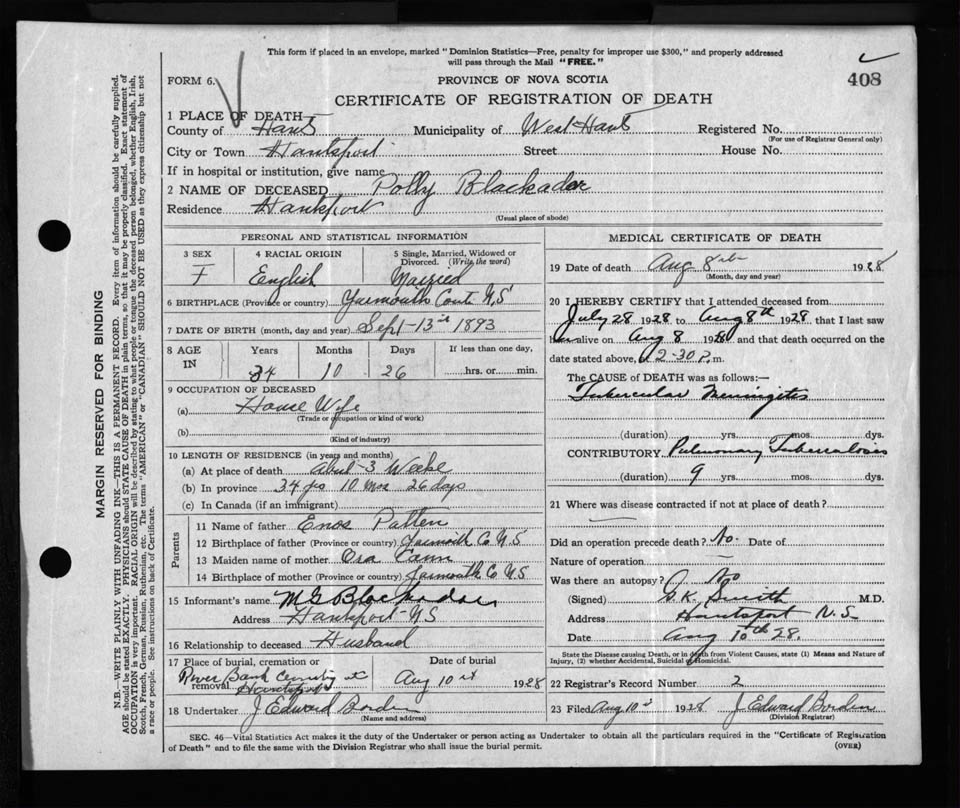 This form if placed in an envelope, marked "Dominion Statistics—Free, penalty for improper use $300," and properly addressed
will pass through the Mail "FREE."
408
FORM 6.
PROVINCE OF NOVA SCOTIA
CERTIFICATE OF REGISTRATION OF DEATH
1 PLACE OF DEATH—
County of Hants Municipality of West Hants Registered No.
(For use of Registrar General only)
City or Town Hantsport Street House No.
If in hospital or institution, give name
2 NAME OF DECEASED Polly Blackador
Residence Hantsport
(Usual place of abode)
PERSONAL AND STATISTICAL INFORMATION
3 SEX 4 RACIAL ORIGIN 5 Single, Married, Widowed or
Divorced. (Write the word)
F English Married
6 BIRTHPLACE (Province or country) Yarmouth Cont N.S
7 DATE OF BIRTH (month, day and year) Sept 13 1893
8 AGE IN Years Months Days If less than one day,
34 10 26 hrs. or min.
9 OCCUPATION OF DECEASED
(a) House Wife
(Trade or occupation or kind of work)
(b)
(Kind of industry)
10 LENGTH OF RESIDENCE (in years and months)
(a) At place of death 3 Weeks
(b) In province 34 yrs 10 mos 26 days
(c) In Canada (if an immigrant)
Parents
11 Name of father Enos Patten
12 Birthplace of father (Province or country) Yarmouth Co N S
13 Maiden name of mother Ora Cann
14 Birthplace of mother (Province or country) Yarmouth Co N S
15 Informant's name M G Blackador
Address Hantsport N S
16 Relationship to deceased Husband
17 Place of burial, cremation or Date of burial
River Bank Cemetery at
removal Hantsport Aug 10 1928
18 Undertaker J Edward Borden
(Name and address)
MEDICAL CERTIFICATE OF DEATH
19 Date of death Aug 8th 1928
(Month, day and year)
20 I HEREBY CERTIFY that I attended deceased from
July 28 1928 to Aug 8th 1928 that I last saw
her alive on Aug 8 1928 and that death occurred on the
date stated above, 2-30 P.m.
The CAUSE of DEATH was as follows:—
Tubercular Meningites
(duration) yrs. mos. dys.
CONTRIBUTORY Pulmonary Tuberculosis
(duration) 9 yrs. mos. dys.
21 Where was disease contracted if not at place of death?
Did an operation precede death? No. Date of
Nature of operation —
Was there an autopsy? No
(Signed) K. Smith M.D.
Address Hantsport N.S.
Date Aug 10th 28.
State the Disease causing Death, or in death from Violent Causes, state (1) Means and Nature of
Injury, (2) whether Accidental, Suicidal or Homicidal.
22 Registrar's Record Number 2
23 Filed Aug 10 1928 J Edward Borden
(Division Registrar)
SEC. 46—Vital Statistics Act makes it the duty of the Undertaker or person acting as Undertaker to obtain all the particulars required in the "Certificate of Registration
of Death" and to file the same with the Division Registrar who shall issue the burial permit.
(OVER)
MARGIN RESERVED FOR BINDING
N.B.—WRITE PLAINLY WITH UNFADING INK—THIS IS A PERMANENT RECORD. Every item of information should be carefully supplied.
AGE should be stated EXACTLY. PHYSICIANS should STATE CAUSE OF DEATH in plain terms, so that it may be properly classified. Exact statement of
OCCUPATION is very important. RACIAL ORIGIN will be described by stating to what people or tongue the deceased person belonged, whether English, Irish,
Scotch, French, German, Russian, Ruthenian, etc. The terms "AMERICAN" or "CANADIAN" SHOULD NOT BE USED as they express citizenship but not
a race or people. See instructions on back of Certificate.